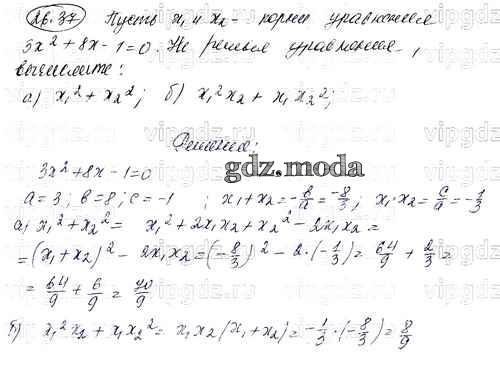 26.37 Пусть x₁ и x₂ - корни уравнения
3x² + 8x - 1 = 0. Не решая уравнения,
вычислите:
а) x₁² + x₂²; б) x₁²x₂ + x₁x₂²;
Решение:
gdz.moda
3x² + 8x - 1 = 0
a = 3; b = 8; c = -1; x₁ + x₂ = -b/a = -8/3; x₁·x₂ = c/a = -1/3
а) x₁² + x₂² = x₁² + 2x₁x₂ + x₂² - 2x₁x₂ =
= (x₁ + x₂)² - 2x₁x₂ = (-8/3)² - 2·(-1/3) = 64/9 + 2/3 =
= 64/9 + 6/9 = 70/9
б) x₁²x₂ + x₁x₂² = x₁x₂(x₁ + x₂) = -1/3·(-8/3) = 8/9